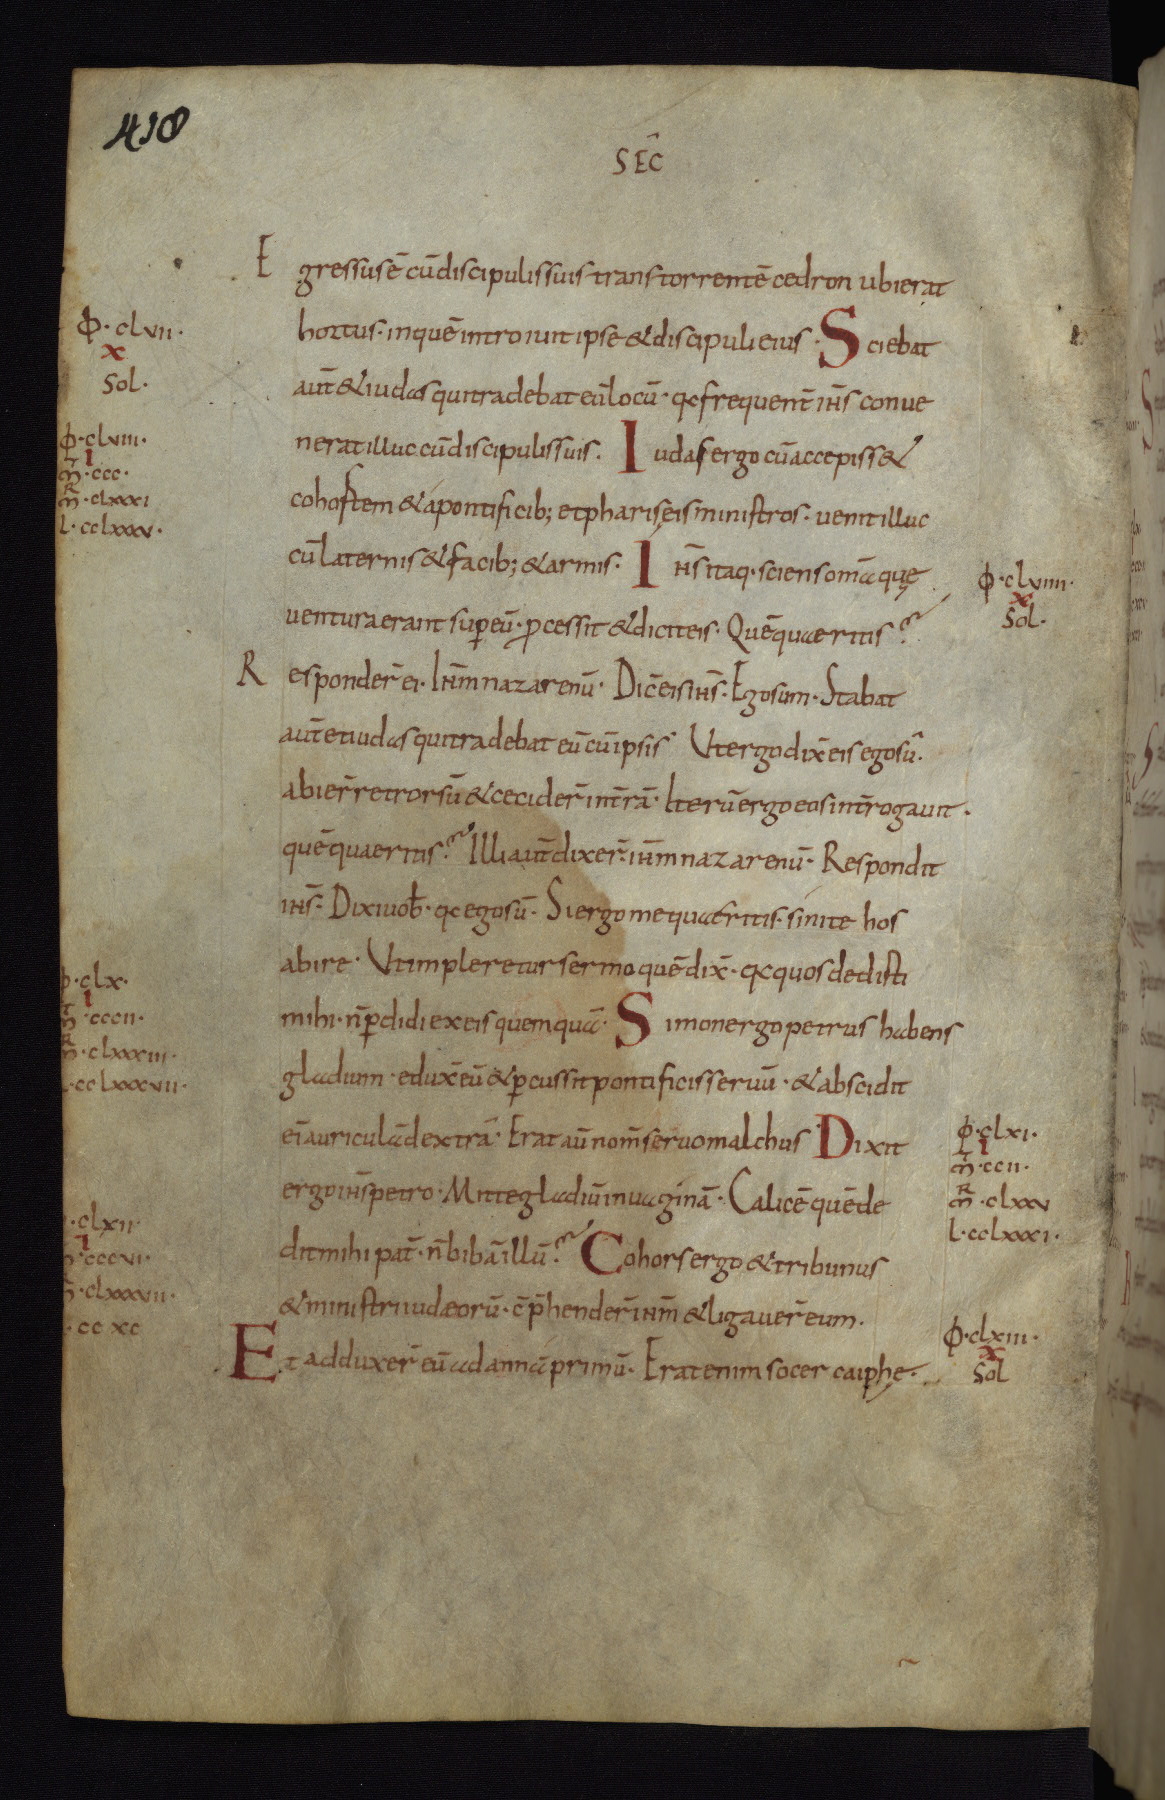 418
SEC̄
Egressus ē cū discipulis suis trans torrentē cedron ubi erat
hortus· in quē introiuit ipse & discipuli eius· Sciebat
aut̄ & iudas qui tradebat eū locū· qꝛ frequent̄ ih̄s conue
nerat illuc cū discipulis suis· Iudas ergo cū accepiss&
cohortem & a pontificib; et phariseis ministros· uenit illuc
cū laternis & facib; & armis· Ih̄s itaq· sciens om̄a quę
uentura erant sup eū· ꝓcessit & dicit eis· Quē quaeritis?
Responder̄ ei· Ih̄m nazarenū· Dic̄ eis ih̄s· Ego sum· Stabat
aut̄ et iudas qui tradebat eū cū ipsis· Ut ergo dix̄ eis ego sū·
abier̄ retrorsū & cecider̄ in t̄rā· Iterū ergo eos int̄rogauit·
quē quaeritis? Illi aut̄ dixer̄· ih̄m nazarenū· Respondit
ih̄s· Dixi uob̄· qꝛ ego sū· Si ergo me quaeritis· sinite hos
abire· Ut impleretur sermo quē dix̄· qꝛ quos dedisti
mihi· n̄ ꝑdidi ex eis quemquā· Simon ergo petrus habens
gladium· edux̄ eū & ꝑcussit pontificis seruū· & abscidit
ei auriculā dextrā· Erat aū nom̄ seruo malchus· Dixit
ergo ih̄s petro· Mitte gladiū in uaginā· Calicē quē de
dit mihi pat̄· n̄ bibā illū? Cohors ergo & tribunus
& ministri iudæorū· cp̄hendert̄ ih̄m & ligauer̄ eum·
Et adduxer̄ eū ad annā primū· Erat enim socer caiphę·
φ· clvii·
x
Sol·
φ· clviii·
I
m̄· ccc·
m̄R· clxxxi
l· cclxxxv·
φ· clviiii·
x
Sol·
φ· clx·
I
m̄· cccii·
m̄R· clxxxiii·
l· cclxxxvii·
φ· clxi·
I
m̄· ccii·
m̄R· clxxv
l· cclxxxi·
· clxii·
I
m̄· cccvi·
m̄R· clxxxvii·
· ccxc
φ· clxiii·
x
Sol